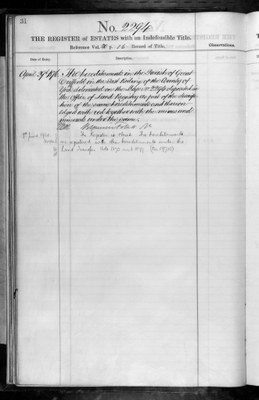 31
No. 2294
THE REGISTER of ESTATES with an Indefeasible Title.
Reference Vol. 16 Record of Title.
Observations.
Date of Entry.
Description.
Hereditaments in the Parish of Great
Driffield in the East Riding of the County of
York delineated on the Map 2294 deposited in
the Office of Land Registry as part of the descrip-
tion of the same hereditaments and thereon
edged red together with the mines and
minerals under the same.
The Register is closed. The hereditaments
are registered with the hereditaments under the
Land Transfer Acts 1875 and 1897